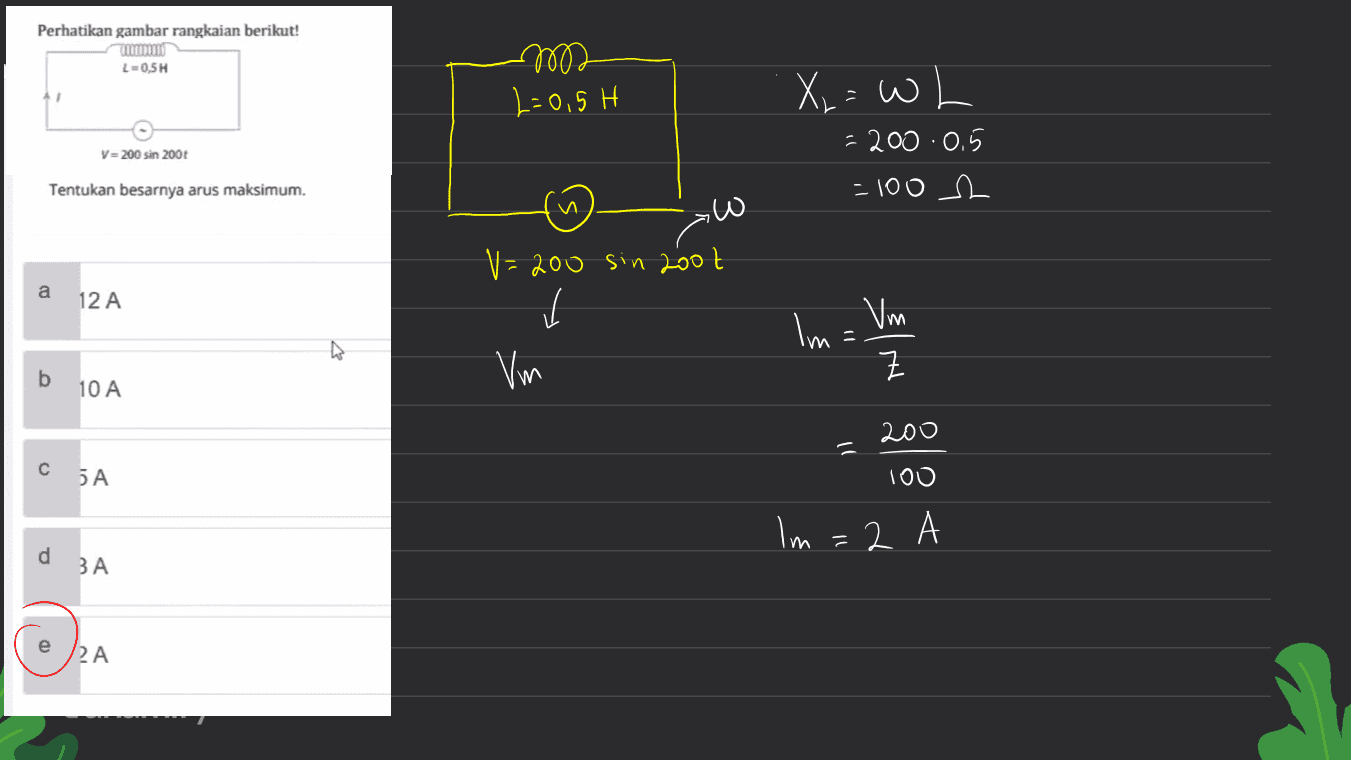 Perhatikan gambar rangkaian berikut!
L = 0,5 H
I
~
V = 200 sin 200t
Tentukan besarnya arus maksimum.
a 12 A
b 10 A
c 5 A
d 3 A
e 2 A
L = 0,5 H
V = 200 sin 200t
ω
Vm
X_L = ω L
= 200 · 0,5
= 100 Ω
Im = Vm / Z
= 200 / 100
Im = 2 A